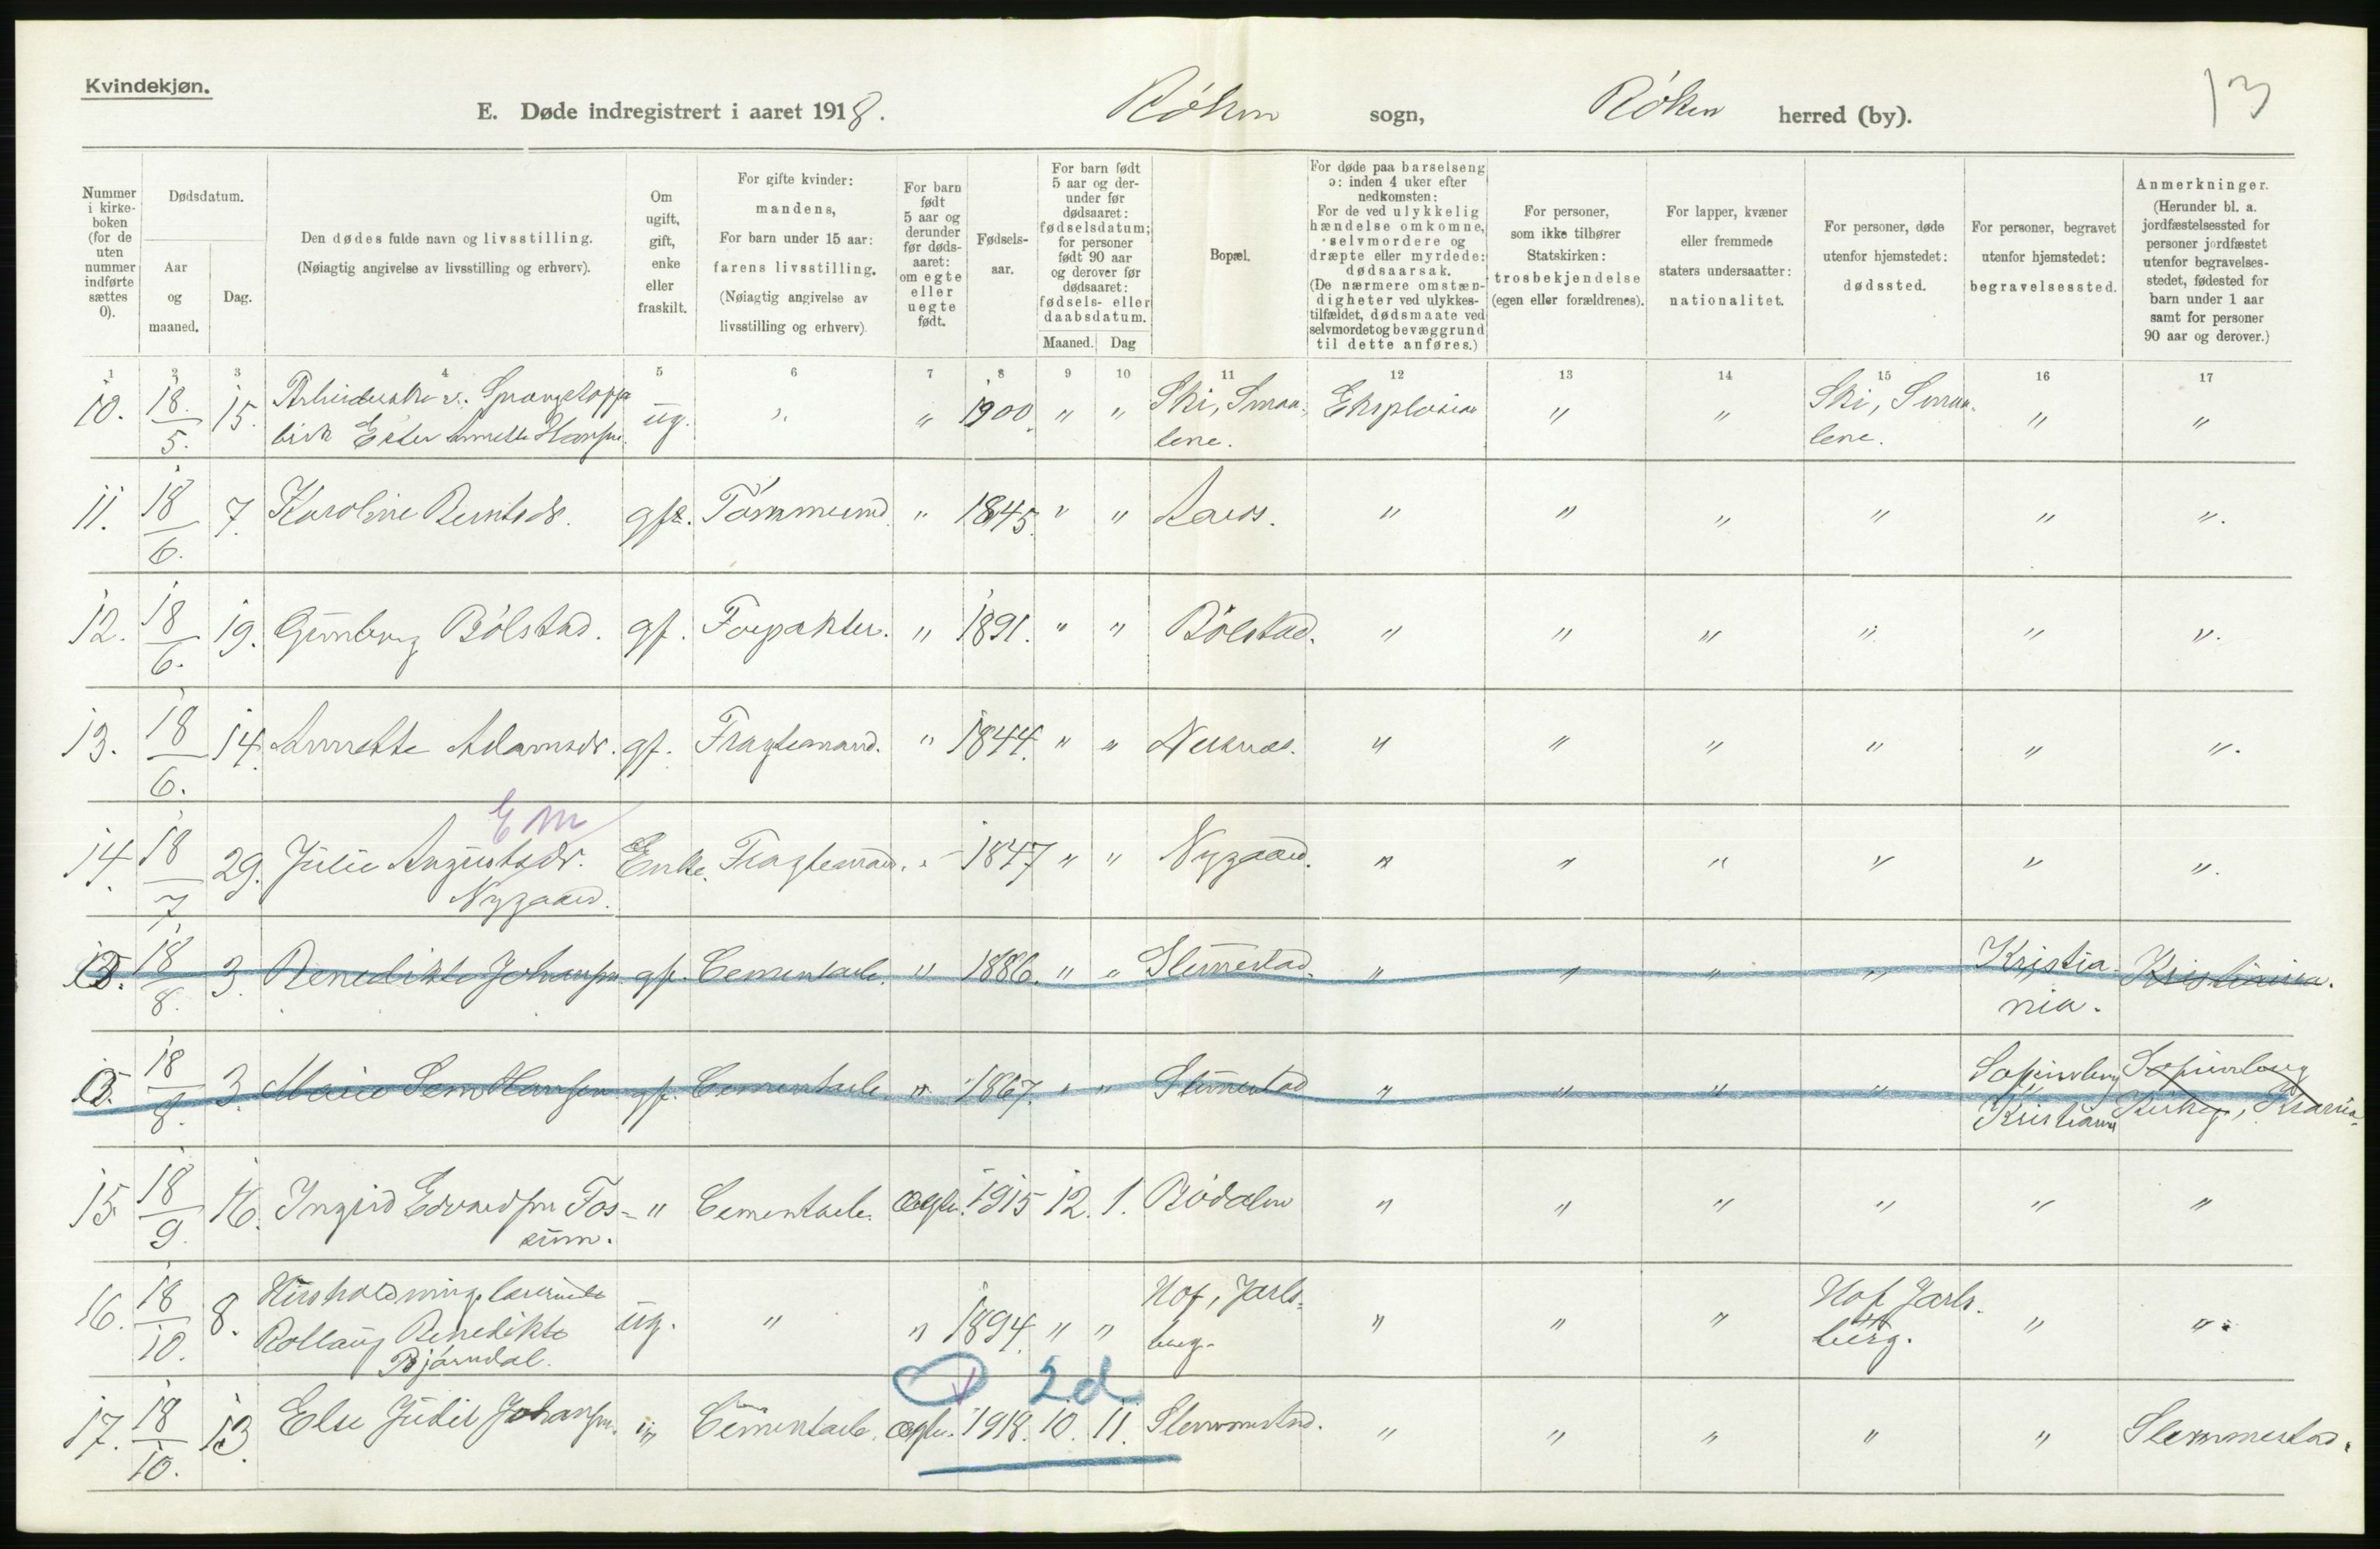 Kvindekjøn.
E. Døde indregistrert i aaret 1918. Røken sogn, Røken herred (by). 13
Nummer i kirke-boken (for de uten nummer indførte sættes 0).
Dødsdatum.
Aar og maaned.
Dag.
Den dødes fulde navn og livsstilling.
(Nøiagtig angivelse av livsstilling og erhverv).
Om ugift, gift, enke eller fraskilt.
For gifte kvinder: mandens,
For barn under 15 aar: farens livsstilling.
(Nøiagtig angivelse av livsstilling og erhverv)
For barn født 5 aar og derunder før døds-aaret: om egte eller uegte født.
Fødsels-aar.
For barn født 5 aar og der-under før dødsaaret: fødselsdatum; for personer født 90 aar og derover før dødsaaret: fødsels- eller daabsdatum.
Maaned. Dag
Bopæl.
For døde paa barselseng ɔ: inden 4 uker efter nedkomsten:
For de ved ulykkelig hændelse omkomne, selvmordere og dræpte eller myrdede: dødsaarsak.
(De nærmere omstæn-digheter ved ulykkes-tilfældet, dødsmaate ved selvmordet og bevæggrund til dette anføres.)
For personer, som ikke tilhører Statskirken: trosbekjendelse (egen eller forældrenes).
For lapper, kvæner eller fremmede staters undersaatter: nationalitet.
For personer, døde utenfor hjemstedet: dødssted.
For personer, begravet utenfor hjemstedet: begravelsessted.
Anmerkninger.
(Herunder bl. a. jordfæstelsessted for personer jordfæstet utenfor begravelses-stedet, fødested for barn under 1 aar samt for personer 90 aar og derover.)
1 2 3 4 5 6 7 8 9 10 11 12 13 14 15 16 17
10. 18/5. 15. Arbeiderske v. Sprængstoffa
brik Ester Annette Hansen ug. " " 1900. " " Ski, Smaa-
lene. Eksplosion " " Ski, Smaa-
lene. " "
11. 18/6. 7. Karoline Berntsdr. gft. Tømmermd. " 1845. " " Aaros. " " " " " ".
12. 18/6. 19. Gunborg Bølstad. gf. Forpakter. " 1891. " " Bølstad. " " " " " ".
13. 18/6. 14. Annette Adamsdr. gf. Fragtemand. " 1844. " " Nærsnes. " " " " " ".
E M
14. 18/7 29. Julie Augustsdr.
Nygaard. Enke. Fragtemand. " 1847 " " Nygaard. " " " " " ".
15. 18/8. 3. Benedikte Johansen gf. Cementarb. " 1886. " " Slemmestad. " " " " Kristia-
nia. Kristiania.
15. 18/8. 3. Marie Sem Hansen gf. Cementarb. " 1867. " " Slemmestad " " " " Sofienberg
Kristiania Sofienberg
Kirkeg., Krania.
15 18/9. 16. Ingrid Edvardsen Fos-
sum. " Cementarb. ægte. 1915 12. 1. Bødalen " " " " " "
16. 18/10. 8. Husholdningslærerinde
Rollaug Benedikte
Bjørndal. ug. " " 1894. " " Hof, Jarls-
berg. " " " Hof Jarls-
berg. " ".
2d
17. 18/10. 13. Else Judit Johansen. " Cementarb. ægte. 1918. 10. 11. Slemmestad. " " " " " Slemmestad.